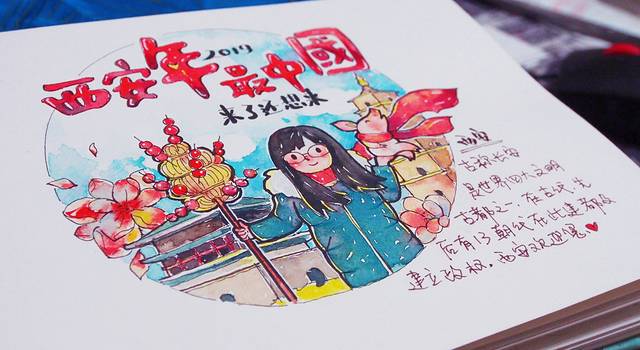 西安年 2019 最中國
来了还想来
西安
古称长安
是世界四大文明
古都之一.在古代先
后有13朝代在此建都及
建立政权.西安欢迎您♥